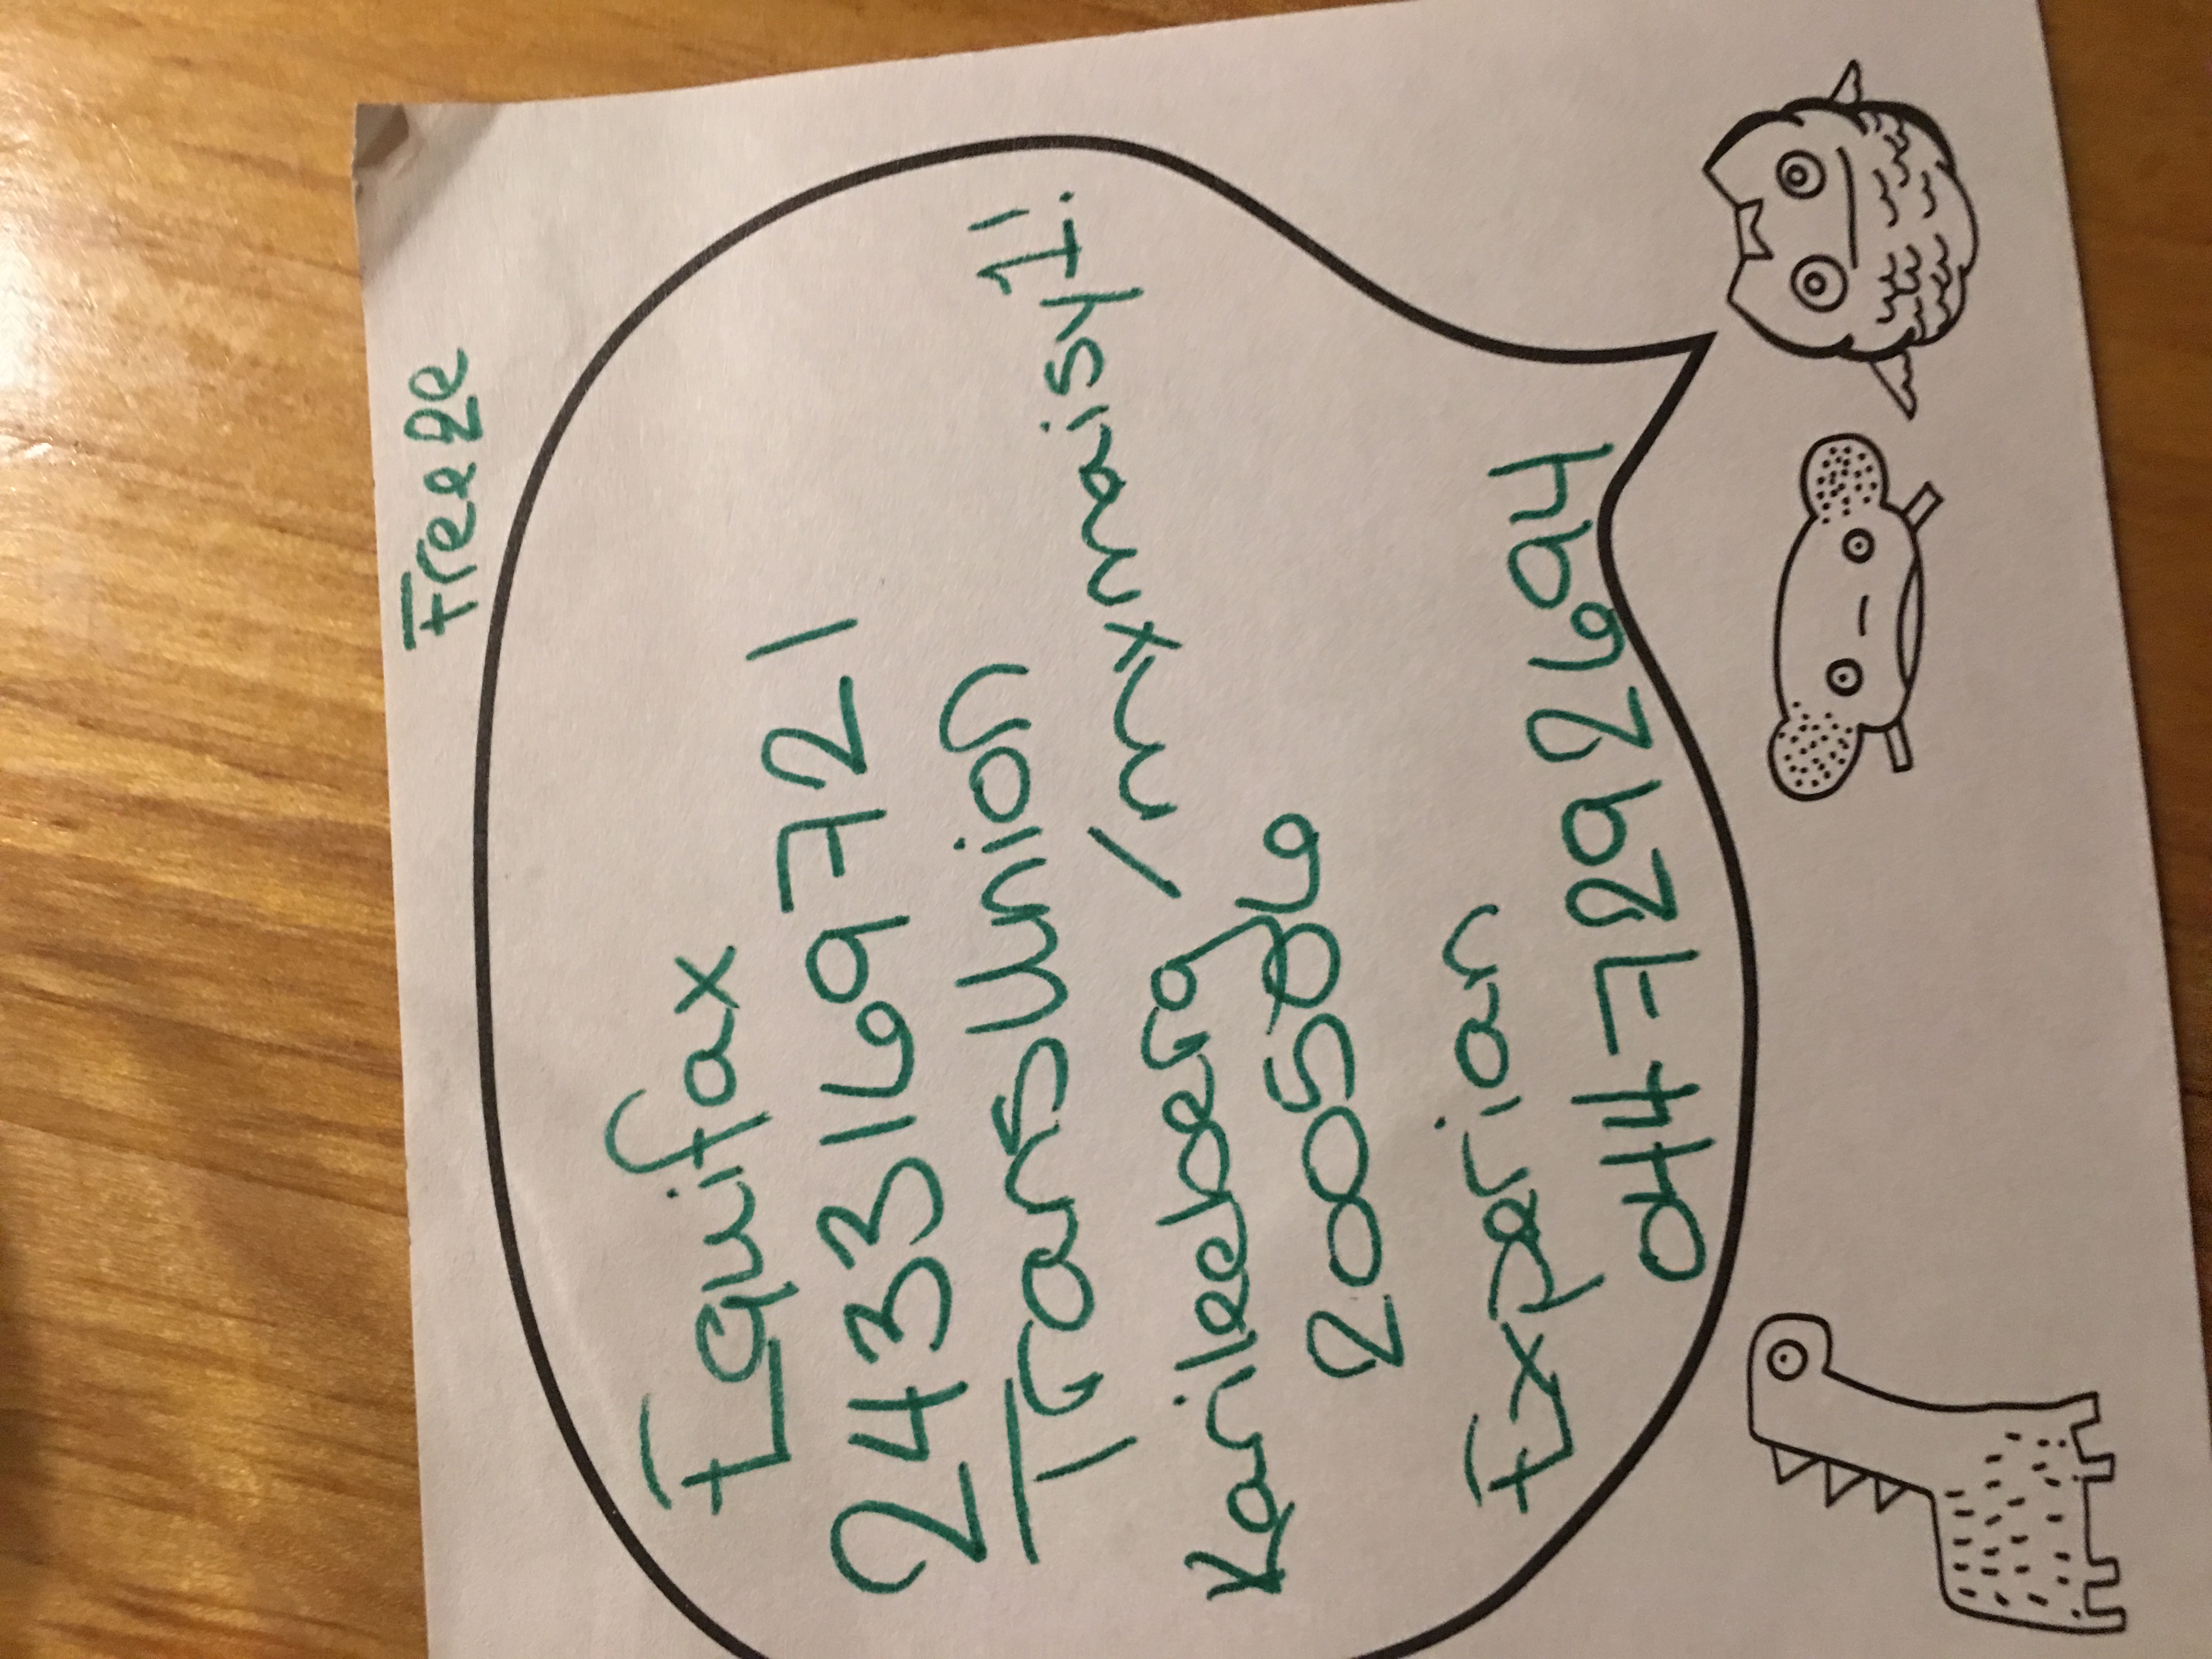 Freeze
Equifax
2433169721
TransUnion
Karileberg/mxmaisy1!
200586
Experian
047292694